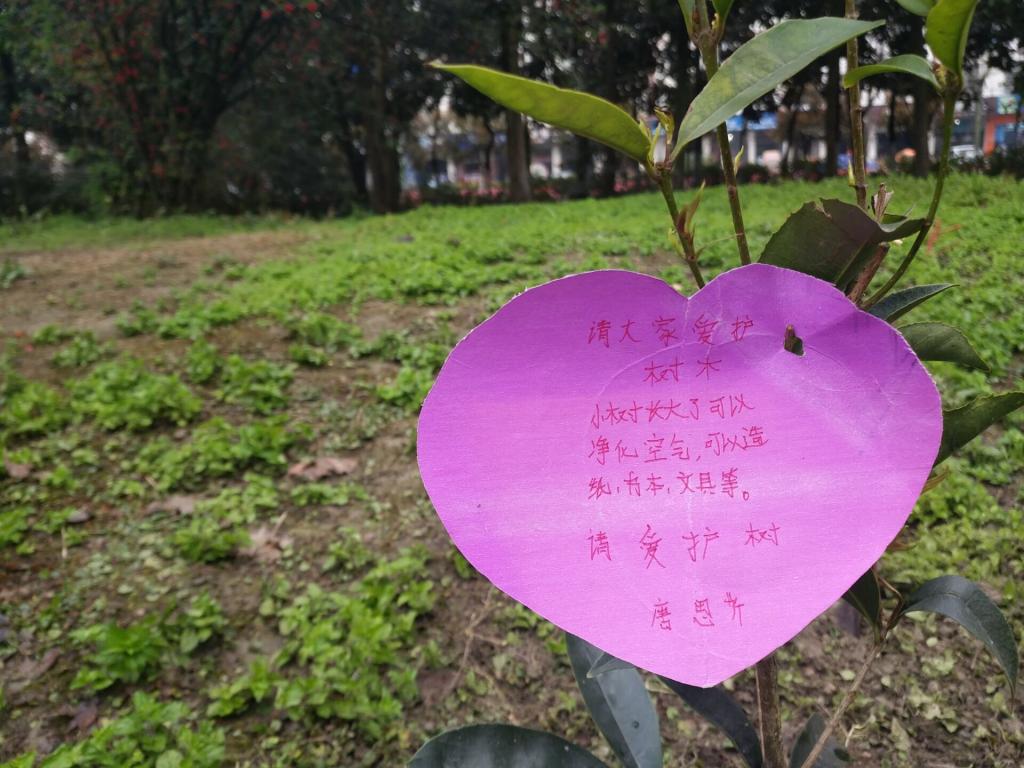 请大家爱护
树木
小树长大了可以
净化空气,可以造
纸,书本,文具等。
请爱护树
唐思齐